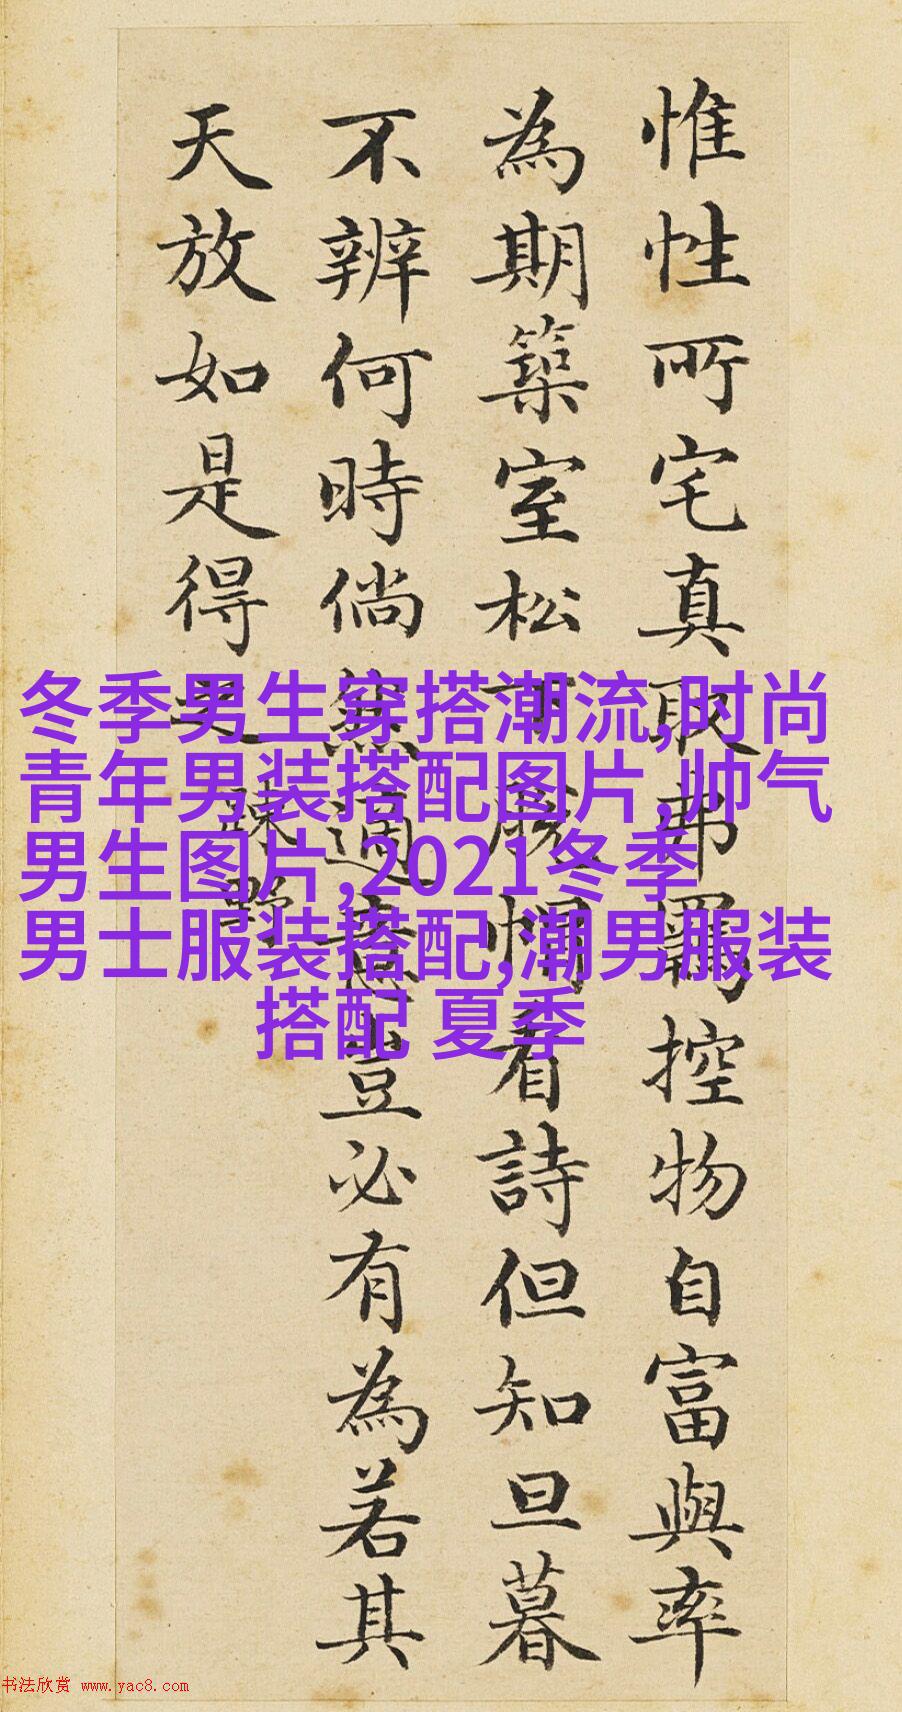 惟性所宅真取弗羈控物自富與率
為期築室松下脫帽看詩但知旦暮
不辨何時倘然適意豈必有為若其
天放如是得之
踈野
冬季男生穿搭潮流,时尚
青年男装搭配图片,帅气
男生图片,2021冬季
男士服装搭配,潮男服装
搭配 夏季
书法欣赏 www.yac8.com